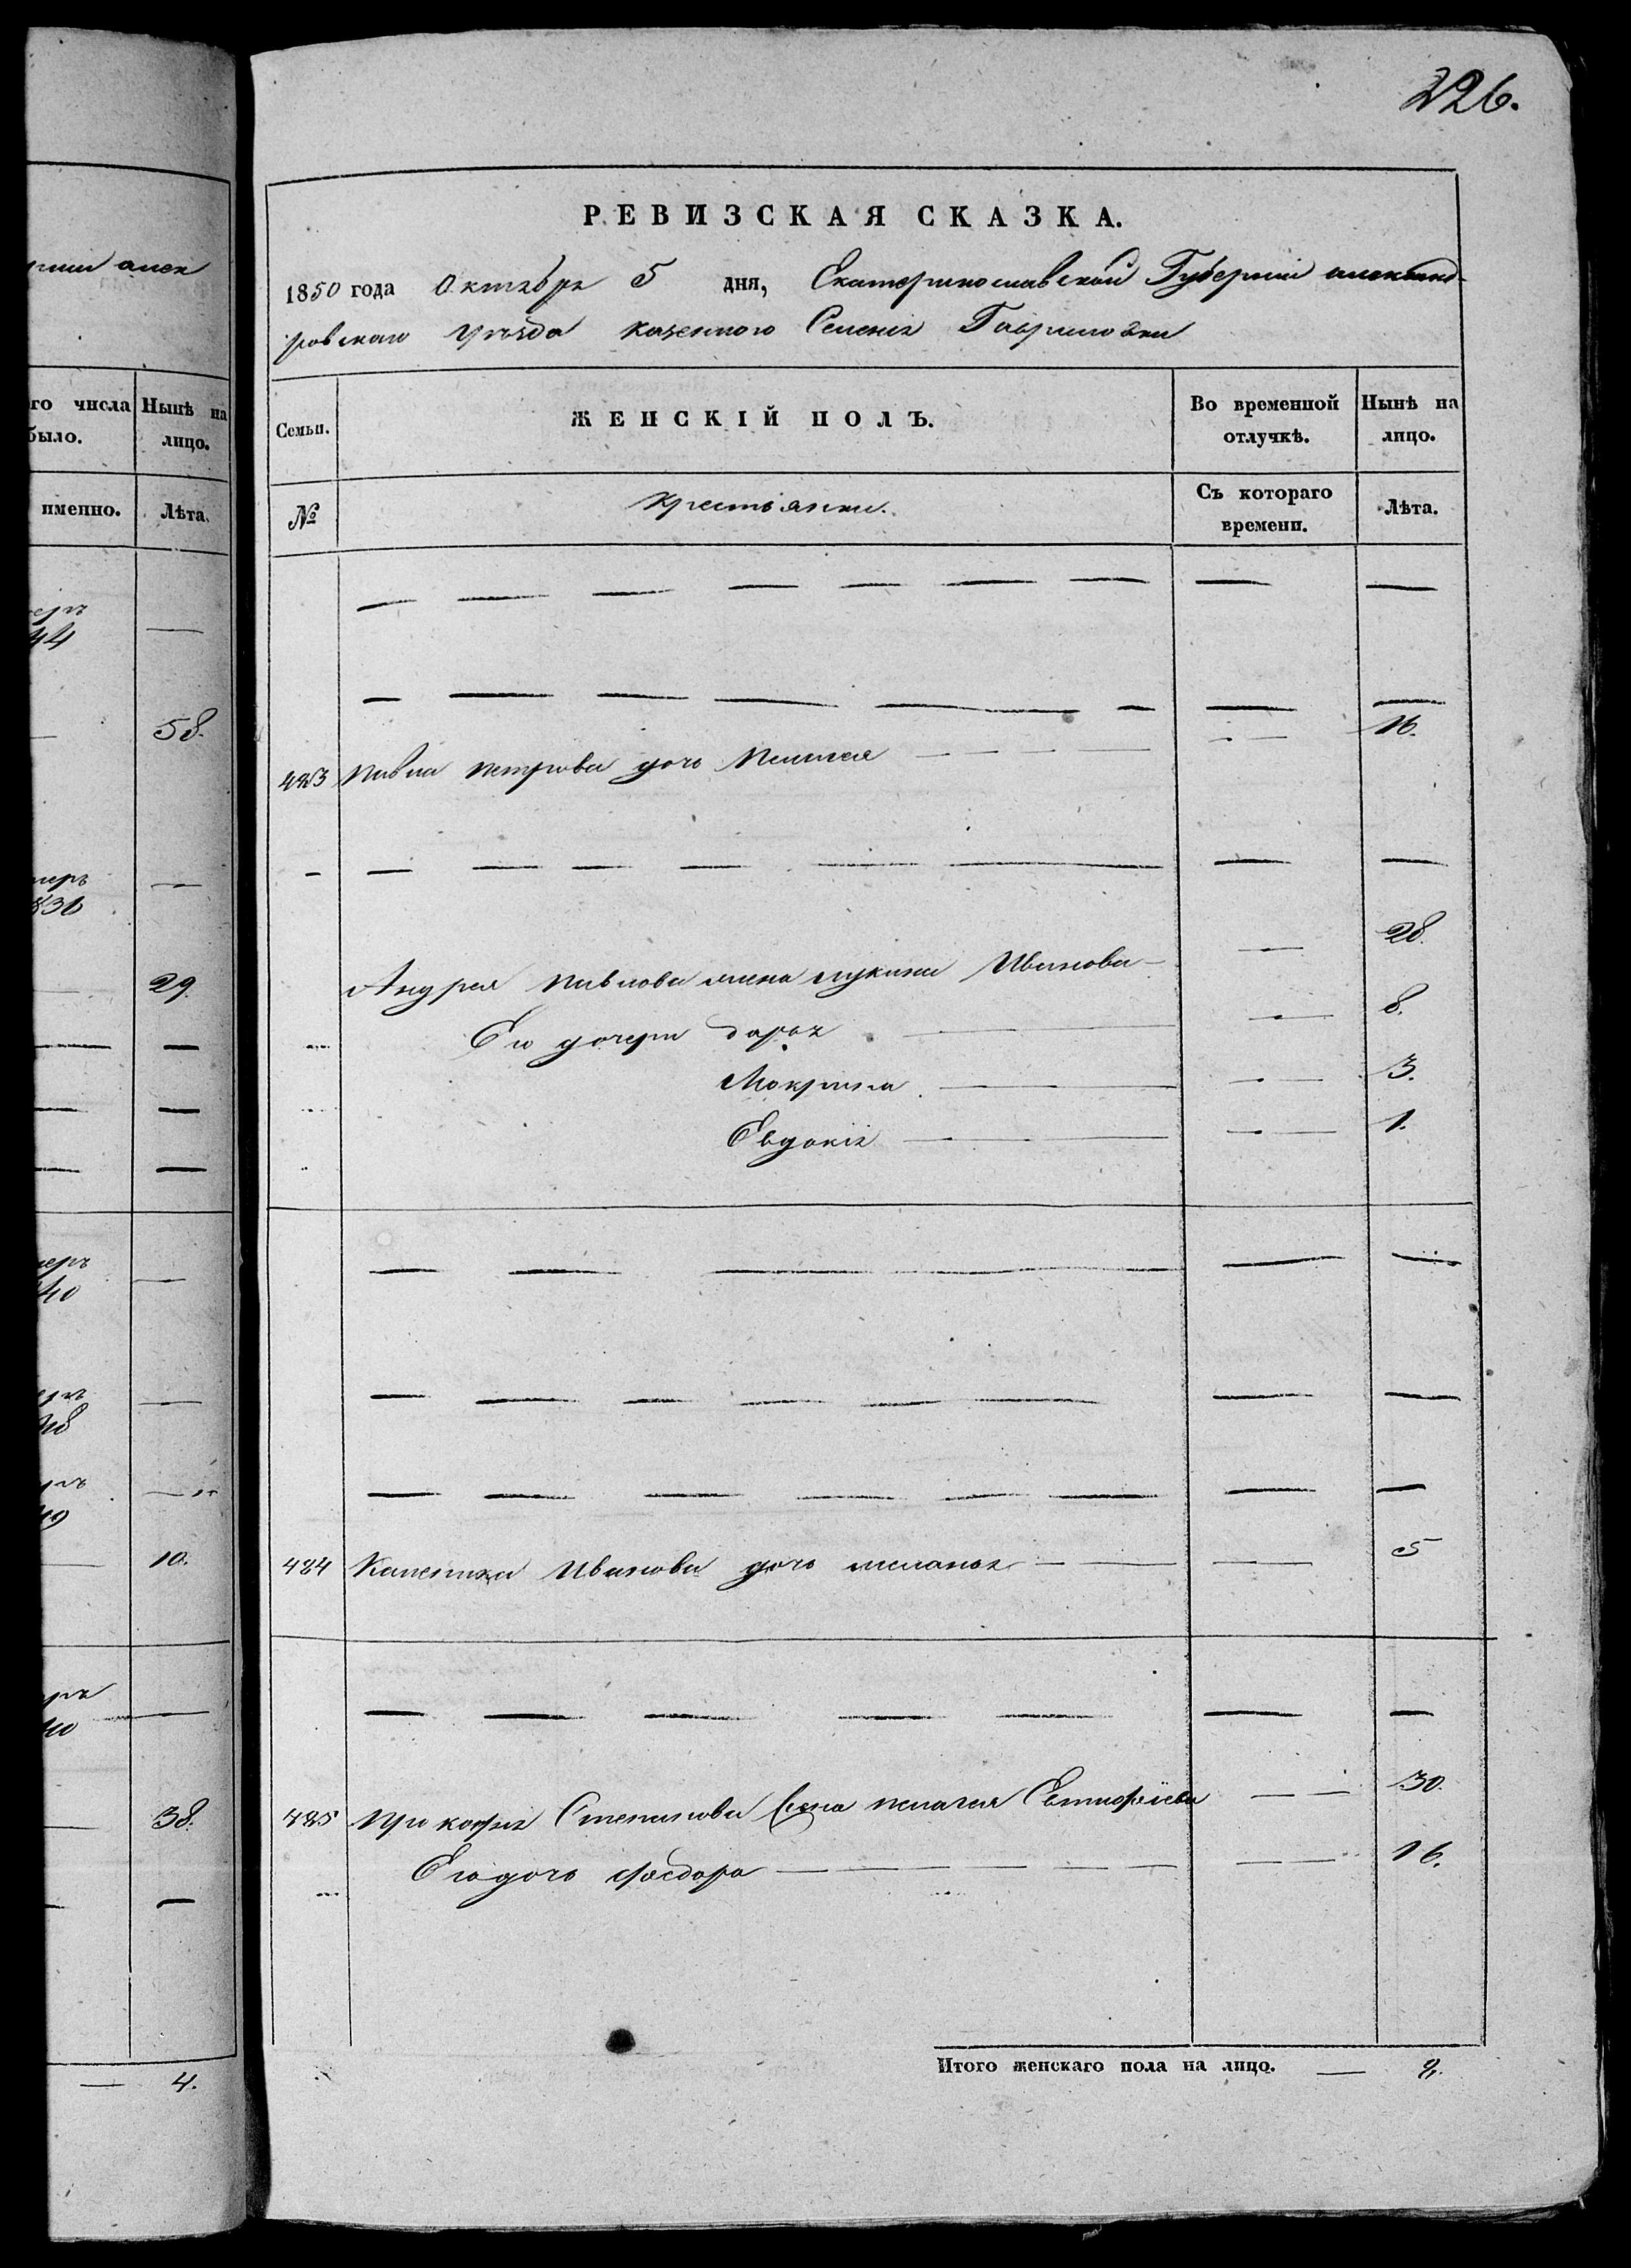 226.
гнии алек
го числа было.
Нынѣ на лицо.
именно.
Лѣта.
44
58.
меръ
29.
меръ
40
10.
40
38.
4.
РЕВИЗСКАЯ СКАЗКА.
1850 года Октября 5 дня, Екатеринославской Губернии александ-
ровскаго уѣзда казеннаго Селения Гавриловки
Семьи.
ЖЕНСКІЙ ПОЛЪ.
Во временной отлучкѣ.
Нынѣ на лицо.
№
Крестьянки.
Съ котораго времени.
Лѣта.
483 Павла Петрова дочь Пелагея 16.
Андрея Павлова жена Иванова 28.
Его дочери дарья 8.
Мокрина 3.
Евдокія 1.
484 Иванова дочь меланья 5
485 прокофия Степанова жена пелагея 30.
Его дочь федора 16.
Итого женскаго пола на лицо. 8.